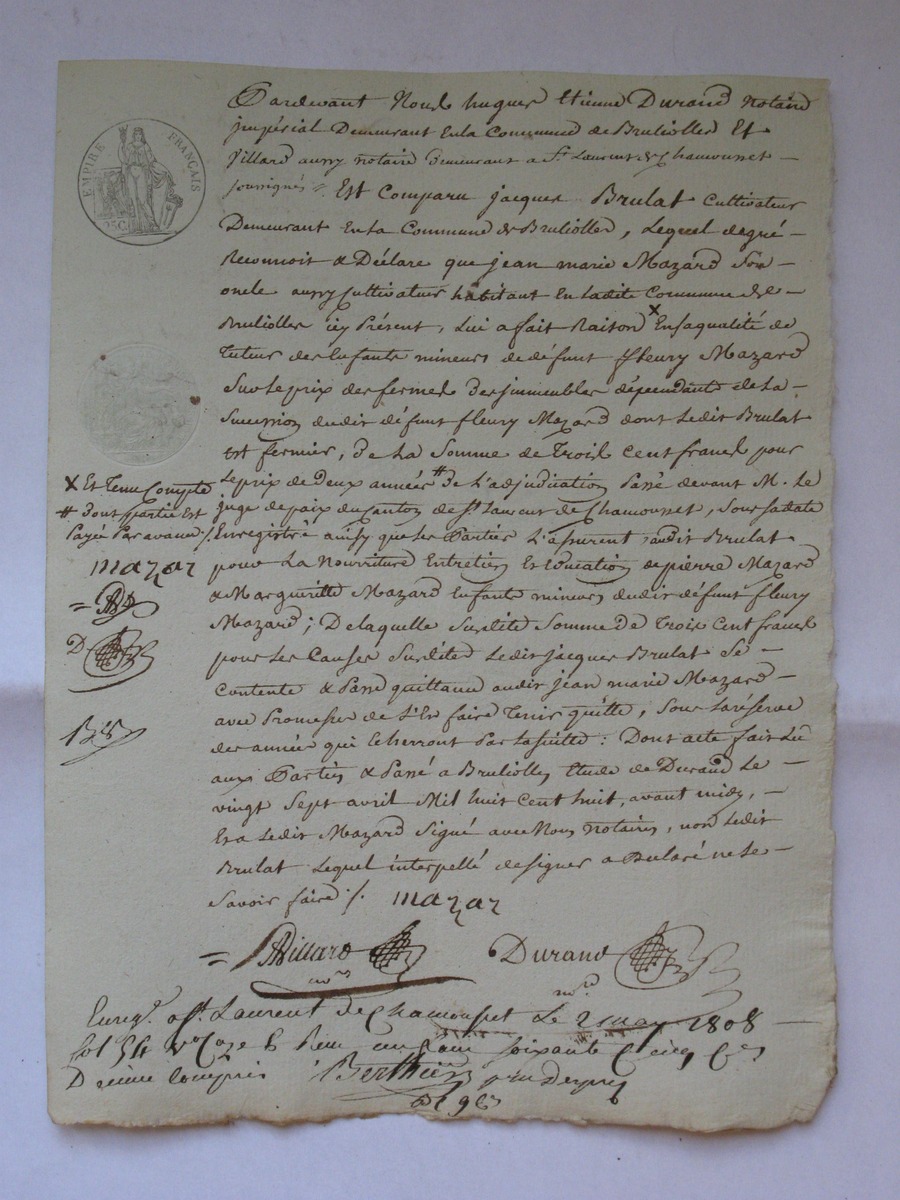 EMPIRE FRANÇAIS
25C.
Pardevant Nous hugues Etienne Durand Notaire
impérial Demeurant Enla Commune de Bruliolles Et
Villard aussy notaire demeurant a St. Laurent de Chamousset
soussignés ; Est Comparu jacques Brulat Cultivateur
Demeurant Enla Commune de Brulliolles, Lequel degré
Reconnoit & Déclare que jean marie Mazard Son
oncle aussy Cultivateur habitant En ladite Commune de
Brulioles icy Présent, Lui a fait Raison X En saqualité de
Tuteur des Enfants mineurs de défunt fleury Mazard
Sur le prix des fermes des immeubles dépendants de La
Succession dudit défunt fleury Mazard dont Ledit Brulat
est fermier, de La Somme de Trois Cent francs pour
Le prix de deux années # de L'adjudication Passé devant M. Le
juge de paix du Canton de St Laurent de Chamousset, Sous sa date
Enregistré ainsy que les Parties L'assurent audit Brulat
pour La Nourriture Entretien Et éducation de pierre Mazard
& Margueritte Mazard Enfants mineurs dudit défunt fleury
Mazard ; De laquelle Susdite Somme de Trois Cent francs
pour Les Causes Susdites Ledit jacques Brulat Se
Contente & Passe quittance audit Jean marie Mazard
avec Promesse de L'En faire Tenir quitte, Sous La réserve
des années qui Echerront Par la suitte : Dont acte fait Lû
aux Parties & Passé a Brulioles Etude de Durand Le
vingt Sept avril Mil huit Cent huit, avant midy,
Et a Ledit Mazard Signé avec Nous notaires, non Ledit
Brulat Lequel interpellé de signer a Déclaré ne le
Savoir faire /. mazar
X Et Tenu Compte
# dont partie Est
Payée Par avance /.
mazar
D
Villard Durand
nore nore
Enreg. a St. Laurent de Chamousset Le 2 may 1808
fol 54 Vo Caze 6 Reçu un franc soixante Cinq Ces
Dixième Compris Berthier